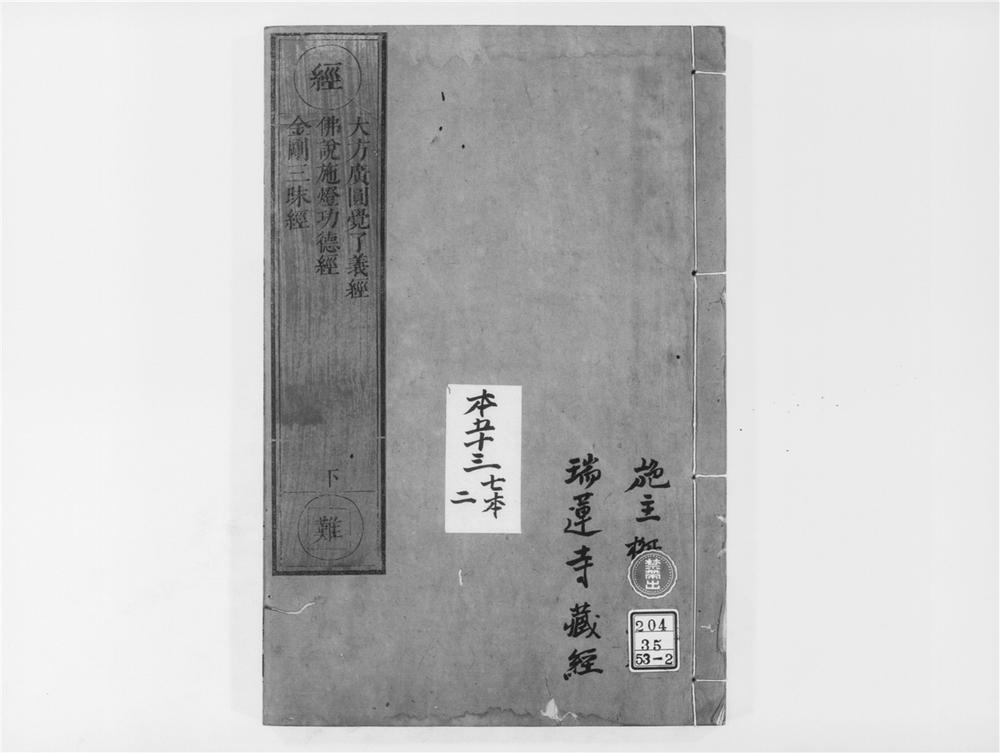 施主
瑞蓮寺藏經
禁帶出
204
35
53-2
本五十三
七本
二
經
大方廣圓覺了義經
佛說施燈功德經
金剛三昧經
下
難